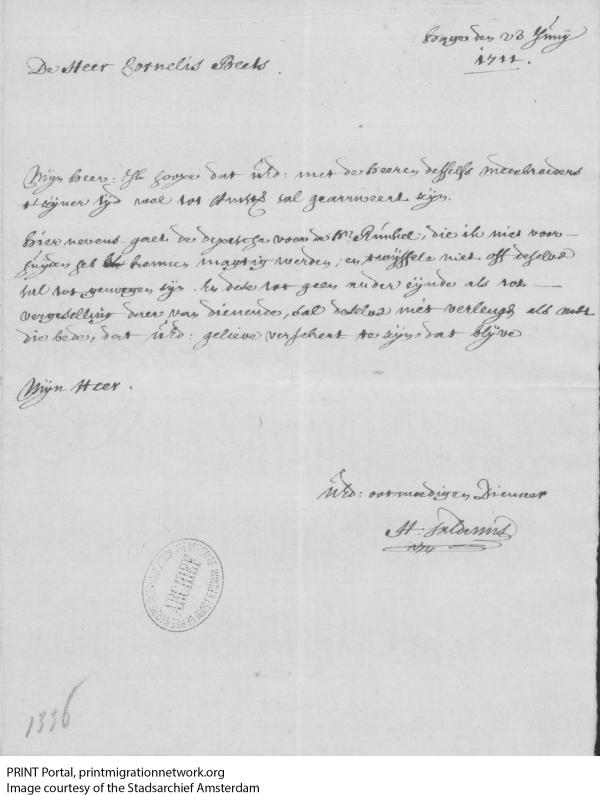 Hage den 23 Junij
1711
De Heer Cornelis Beets.
Mijn heer: Ik hoope dat UEd: met de heeren desselfs medebroeders
t' zijner tijd wel tot Amst: sal gearriveert zijn.
hier nevens gaet de depesche voor de Hr Runkel, die ik niet voor
heb konnen magtig werden; en twijffele niet off deselve
sal tot genoegen zijn. En dese tot geen ander eijnde als tot
vergeselling daer van dienende, sal deselve niet verlengd als met
die bede, dat UEd: gelieve versekert te zijn dat blijve
Mijn Heer.
UEd: ootmoedigen Dienaer
H:
ARCHIEF
1336
PRINT Portal, printmigrationnetwork.org
Image courtesy of the Stadsarchief Amsterdam